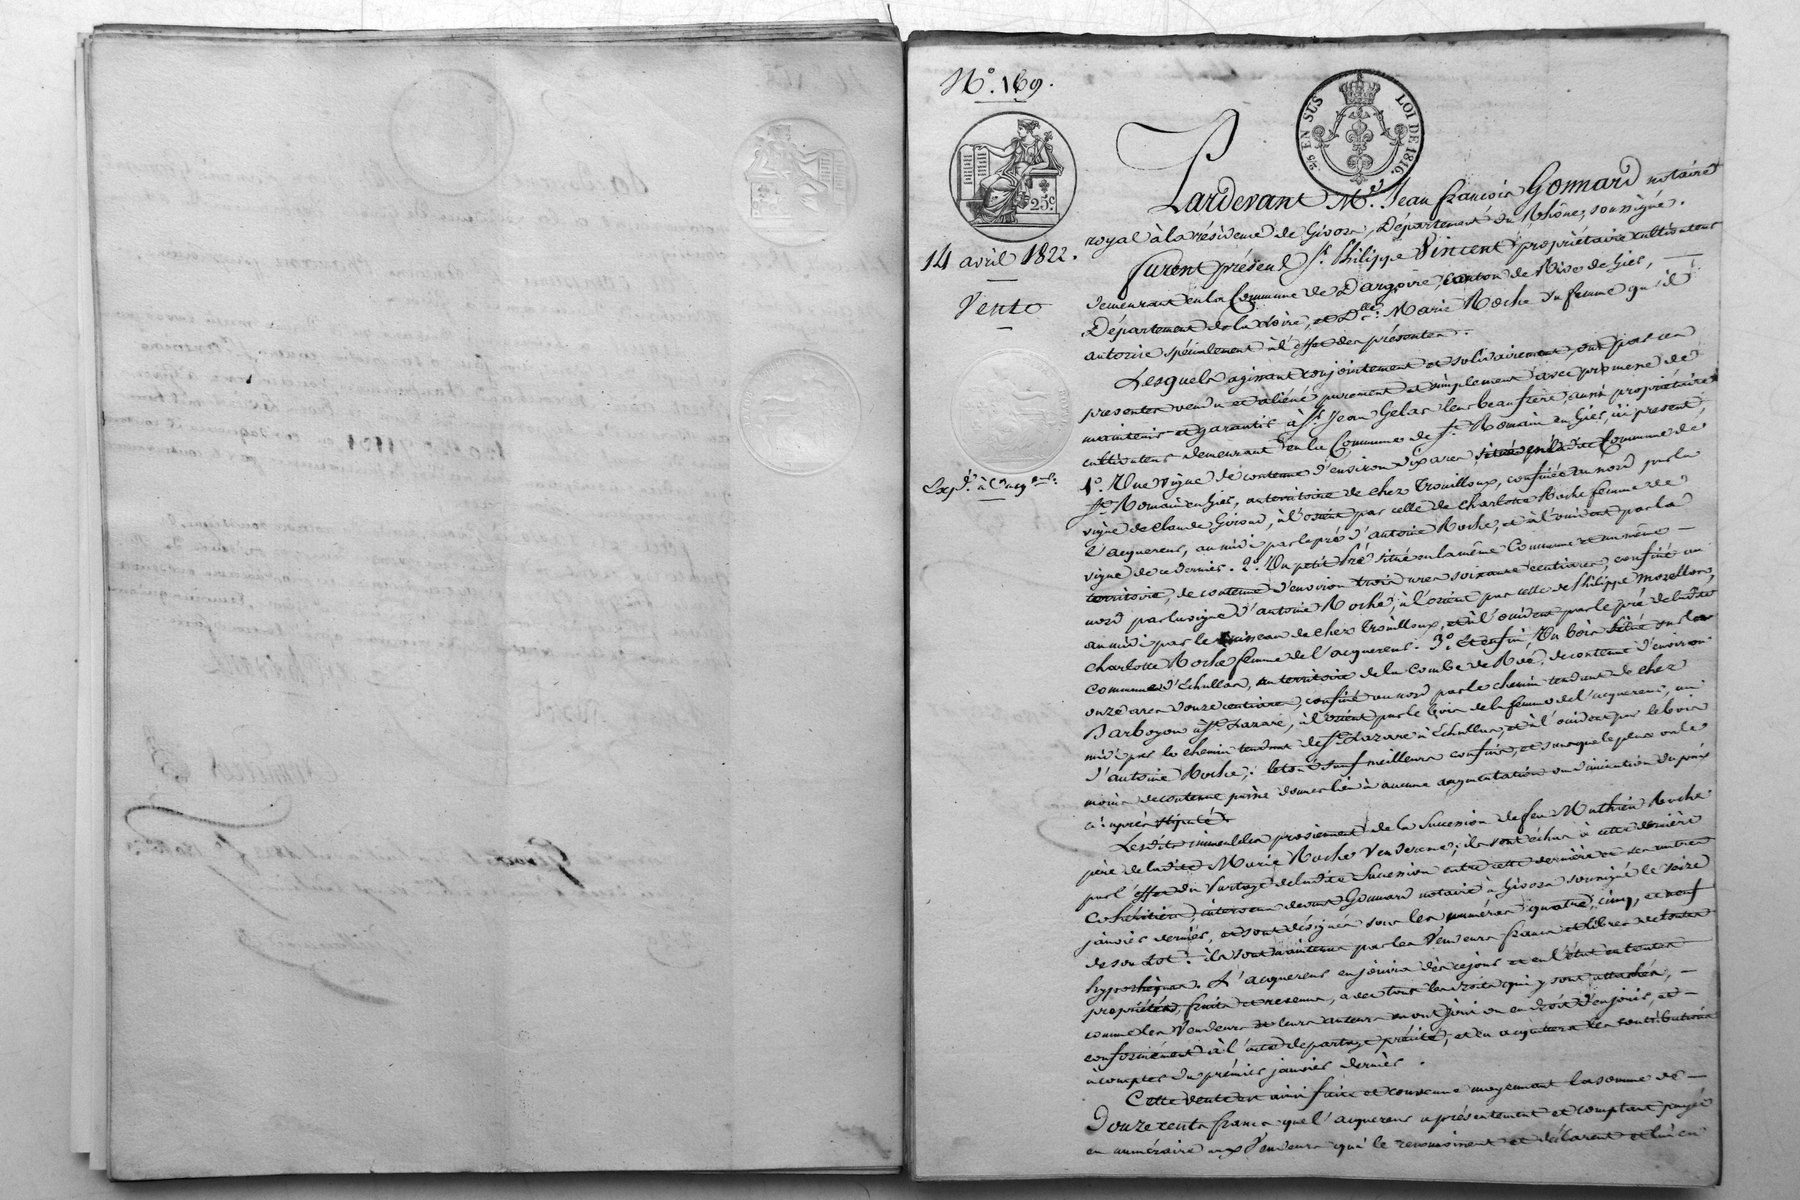 N.° 169.
25 EN SUS LOI DE 1816.
25c.
14 avril 1822.
Vente
Exp.on à l'acq.eur
Pardevant M.e Jean françois Gonnard notaire
royal à la résidence de Givors, Département du Rhône, soussigné.
furent présens S.r Philippe Vincent propriétaire cultivateur
demeurant en la Commune de Dargoire, canton de Rive de Gier,
Département de la Loire, et D.lle Marie Roche sa femme qu'il
autorise spécialement à l'effet des présentes.
Lesquels agissant conjointement et solidairement, ont par ces
presentes vendu et aliéné purement et simplement avec promesse de
maintenir et garantir à S.r Jean Gelas leur beau frère, aussi propriétaire
cultivateur demeurant en la Commune de S.t Romain en Gier, ici présent,
1.° Une vigne de contenue d'environ dix ares, située en la dite Commune de
S.t Romain en Gier, au territoire de chez Trouilloux, confinée au nord par la
vigne de Claude Giroud, à l'orient par celle de Charlotte Roche femme de
l'acquereur, au midi par le pré d'antoine Roche, et à l'occident par la
vigne de ce dernier. 2.° Un petit Pré situé en la même Commune et au même
territoire, de contenue d'environ trois ares soixante centiares, confiné au
nord par la vigne d'antoine Roche, à l'orient par celle de Philippe Mozellon,
au midi par le ruisseau de chez Trouilloux, et à l'occident par le pré de ladite
Charlotte Roche femme de l'acquereur. 3.° Et enfin Un bois situé sur la
commune d'Echallas, au territoire de la Combe de Rée, de contenue d'environ
onze ares douze centiares, confiné au nord par le chemin tendant de chez
Barboyon à S.t Lazare, à l'orient par le bois de la femme de l'acquereur, au
midi par le chemin tendant de S.t Lazare à Echallas, et à l'occident par le bois
d'antoine Roche; le tout sauf meilleurs confins, et sans que le plus ou le
moins de contenue puisse donner lieu à aucune augmentation ou diminution du prix
ci-après stipulé.
Lesdits immeubles proviennent de la Succession de feu Mathieu Roche
père de ladite Marie Roche Venderesse; ils sont échus à cette dernière
par l'effet du Partage de ladite Succession entre cette dernière et ses autres
Cohéritiers, intervenu devant Gonnard notaire à Givors soussigné le seize
janvier dernier, et sont désignés sous les numéros quatre, cinq, et neuf
de son Lot: ils sont maintenus par les Vendeurs francs et libres de toutes
hypothèques. L'acquereur en jouira dès ce jour et en l'état en toutes
propriétés, fruits et revenus, avec tous les droits qui y sont attachés,
comme les Vendeurs et leurs auteurs en ont joui ou eu droit d'en jouir, et
conformément à l'acte de partage précité, et en acquittera les contributions
à compter du premier janvier dernier.
Cette vente est ainsi faite et convenue moyennant la somme de
Douze cents francs que l'acquereur a présentement et comptant payés
en numéraire aux Vendeurs qui le reconnoissent et déclarent et lui en